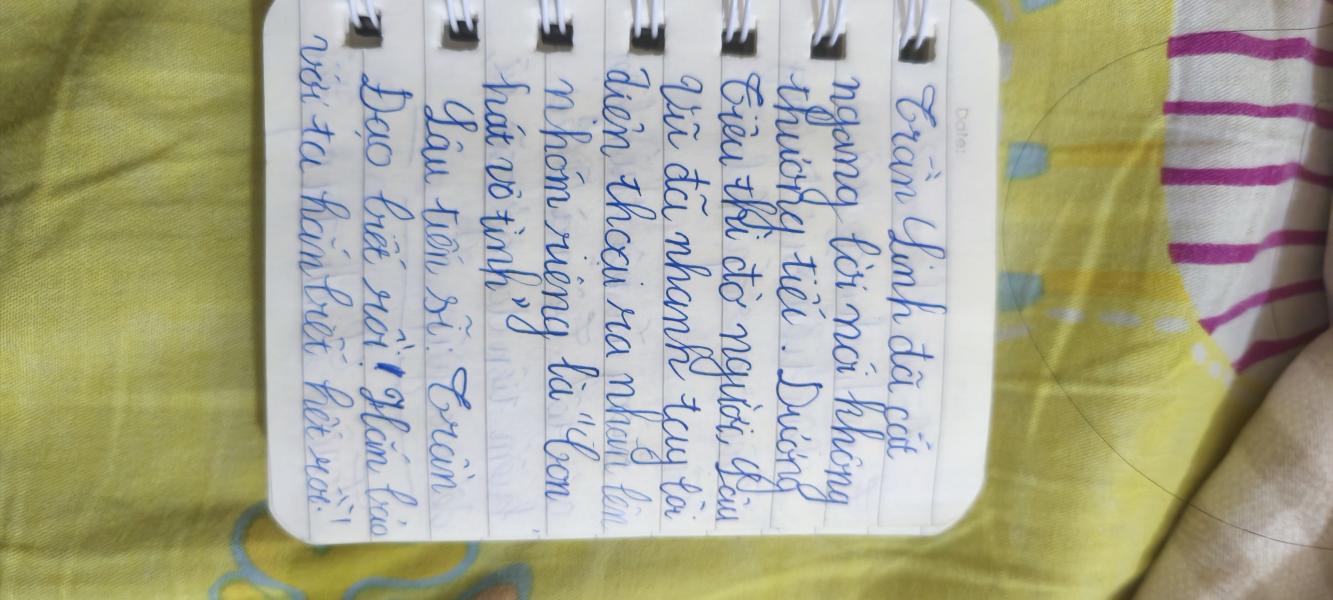 Date:
Trần Linh đã cắt
ngang lời nói không
thương tiếc. Dương
Tiêu thì đờ người, Lâu
Vũ đã nhanh tay lôi
điện thoại ra nhắn lên
nhóm riêng là "Con
hát vô tình"
Lâu tiến sĩ: Trần
Đạo biết rồi! Hắn bảo
với ta hắn biết hết rồi!"